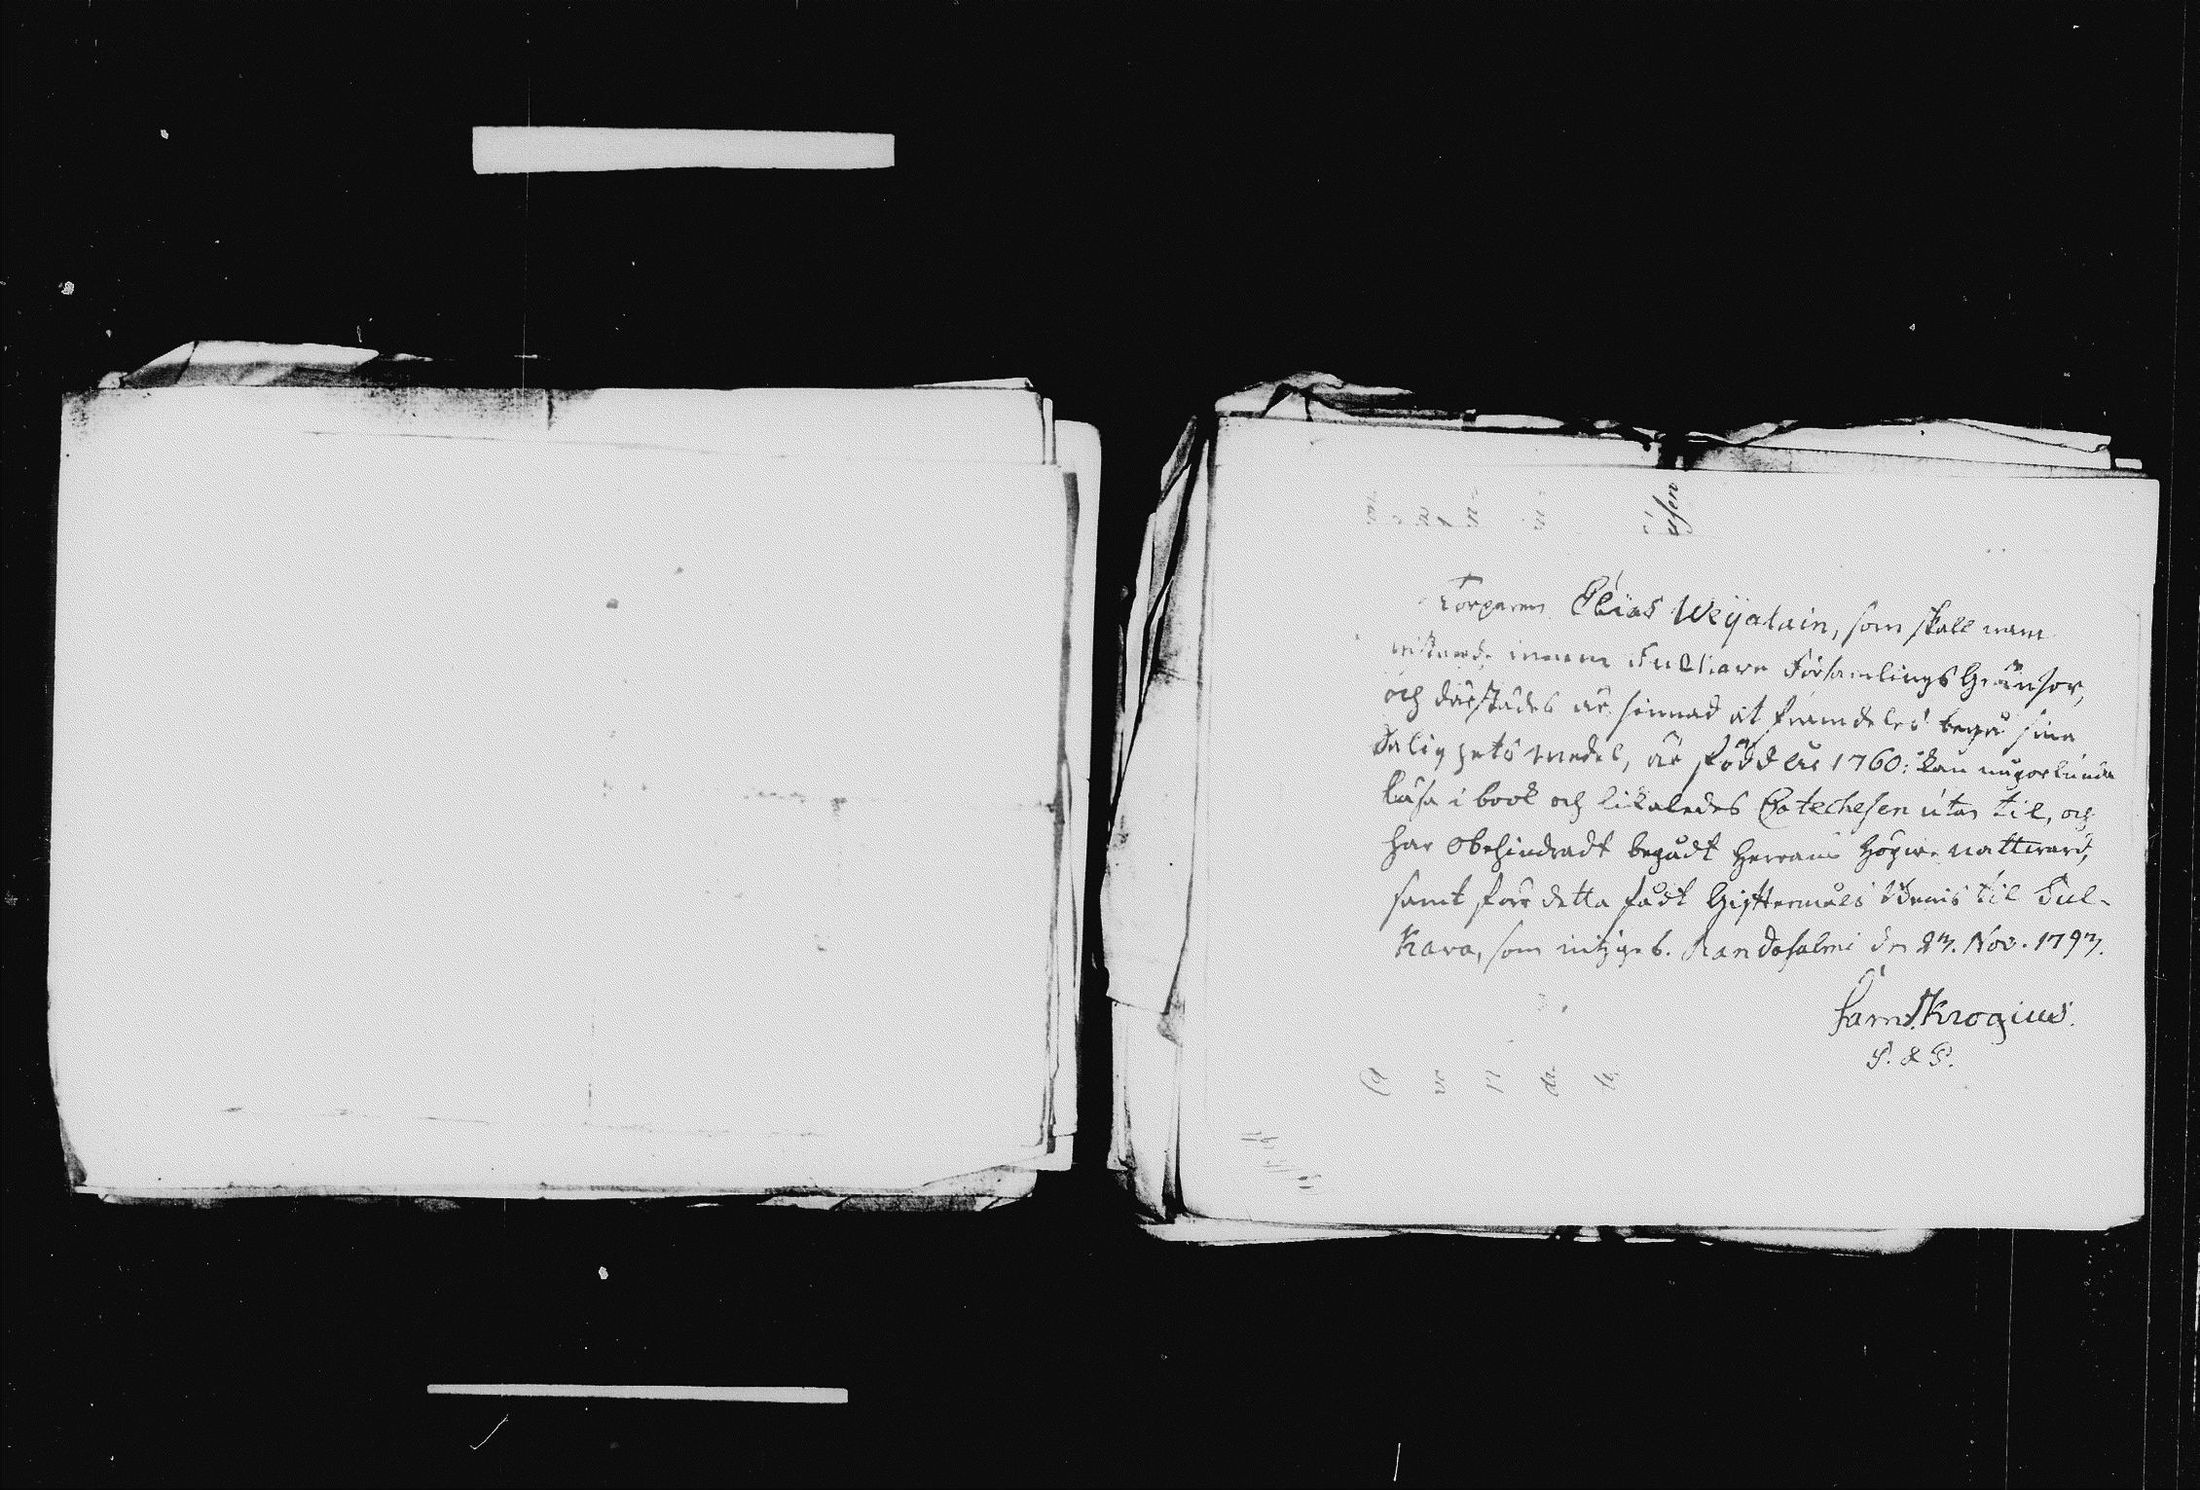 usen
Torparen Elias Weÿalain, som skall nam
wistande innom Tulkava Församlings Gränsor,
och därstädes är sinnad at framdeles begå sina
Salighets medel, är född År 1760: kan någorlunda
läsa i book och likaledes Catechesen utan til, och
har obehindradt begådt Herrans Högw. nattward,
samt förr detta fådt Gifttermåls Bewis til Sul-
kava, som intygas. Randasalmi dn 27. Nov. 1797.
Saml. Krogius.
S. & P.